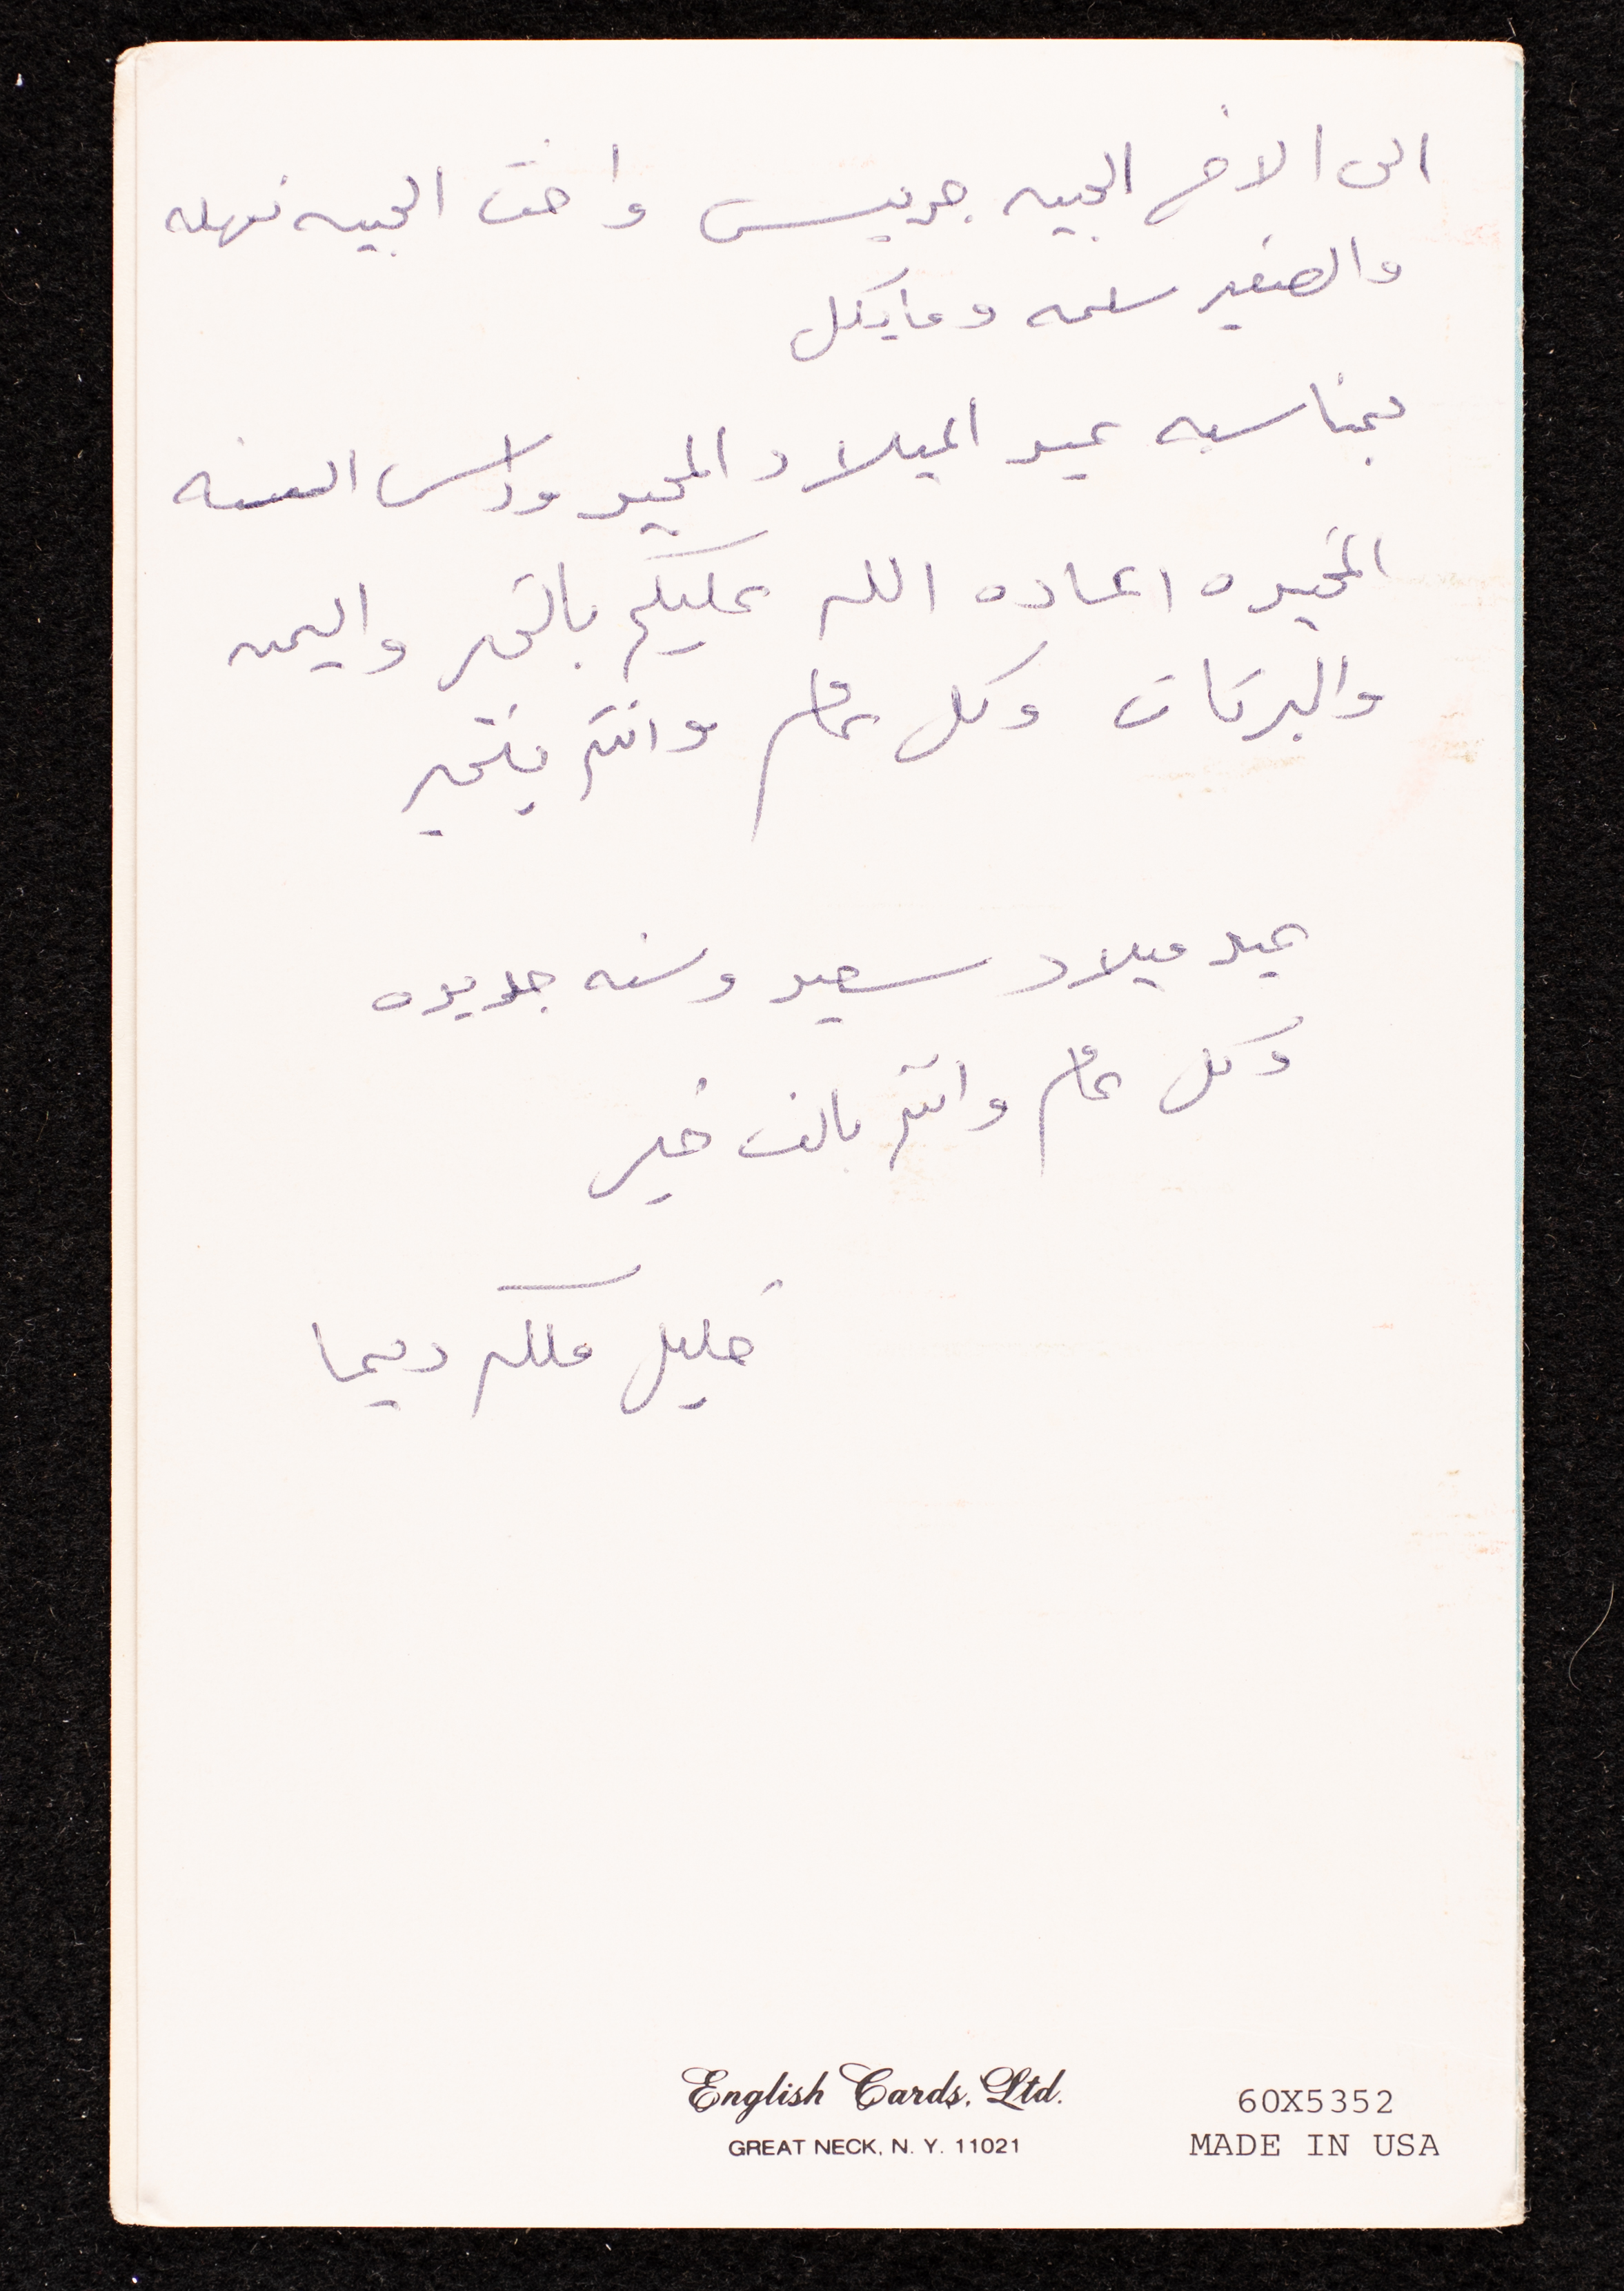 الى الاخ الحبيب جريس واخت الحبيبه نهله
والصغير سلمه ومايكل
بمناسبه عيد الميلاد المجيد وراس السنه
المجيده اعاده الله عليكم بالخير واليمن
والبركات وكل عام وانتم بخير
عيد ميلاد سعيد وسنه جديده
وكل عام وانتم بالف خير
خليل ملكه ديما
English Cards, Ltd.
GREAT NECK, N. Y. 11021
60X5352
MADE IN USA